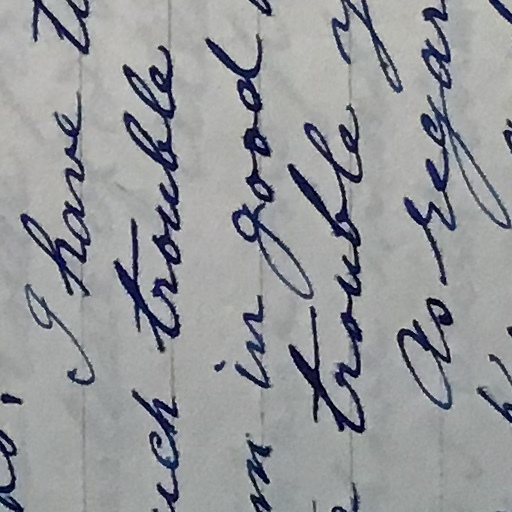 I have t
uch trouble
m in good
trouble y
As regar